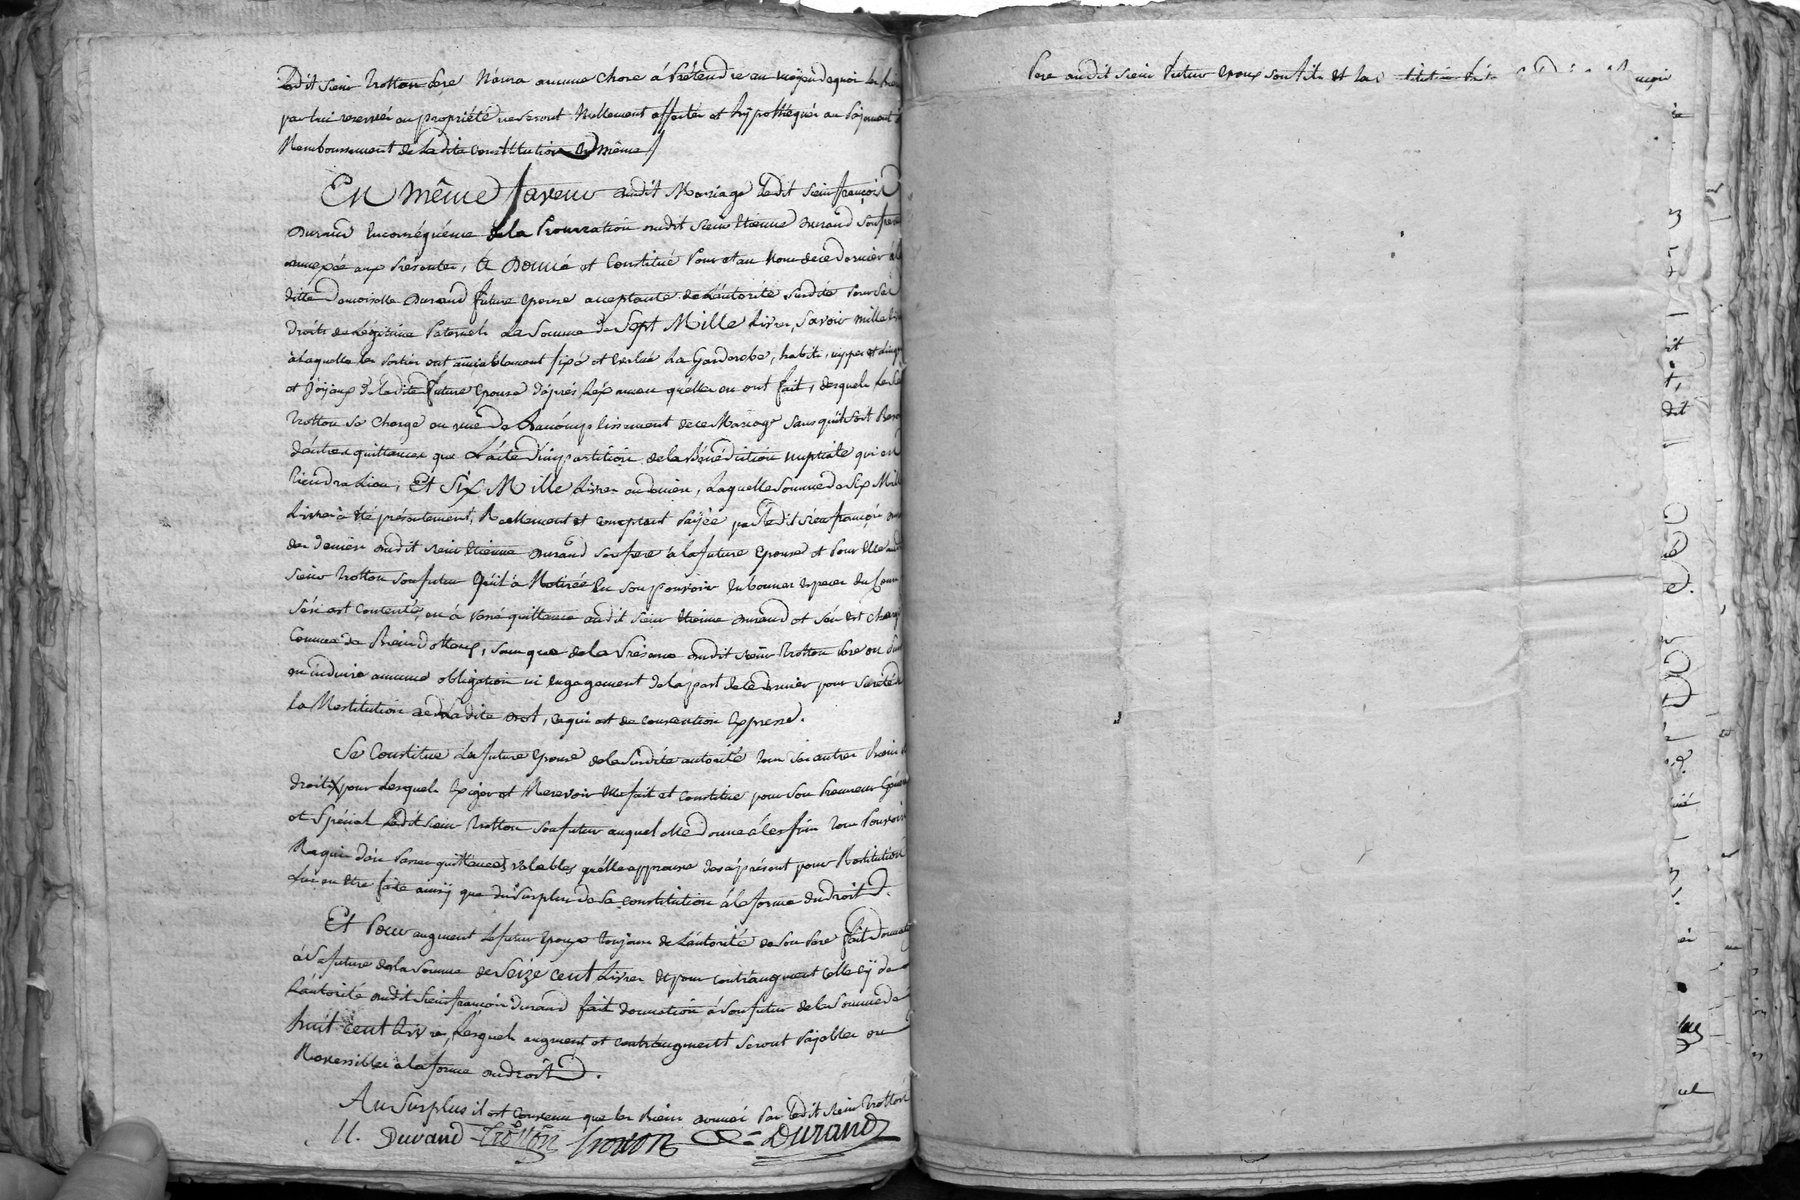 Ledit sieur Trotton Pere N'aura aucune chose á Prétendre au moyen de quoi les biens
par lui reservés en propriété ne seront Nullement affectés et hÿpothéqués au Paÿement
Remboursement de La dite constitution
En même faveur dudit Mariage Ledit sieur françois
Durand En conséquence de la Procuration dudit sieur Etienne Durand son frere
annexée aux Présentes, A Donné et Constitué Pour et au Nom de ce dernier á la
ditte Demoiselle Durand future Epouse acceptante de L'autorité susdite Pour ses
droits de Légitime Paternels La Somme de Sept Mille Livres, Savoir mille livres
à Laquelle les Parties ont amiablement fixé et évalué La Garderobe, habits, nippes et Linges
et Joÿaux de Ladite Future Epouse d'après L'éxamen qu'elles en ont fait, desquels Le sieur
Trotton se charge au moyen de L'accomplissement de ce Mariage Sans qu'il soit Besoin
d'autres quittances que L'acte d'impartition de la Bénédiction nuptiale qui en
Tiendra Lieu, Et Six Mille Livres en deniers, Laquelle Somme de Six Mille
Livres à été présentement, Réellement et comptant Paÿée par Ledit sieur françois
des deniers dudit sieur Etienne Durand son frere à la future Epouse et Pour Elle audit
sieur Trotton son futur Qui L'à Retirée En son pouvoir En bonnes Especes du Cours
s'en est contenté, en á passé quittance audit sieur Etienne Durand et s'en est chargé
Comme de Biens Dotaux, sans que de la Présence dudit sieur Trotton Pere on puisse
en induire aucune obligation ni Engagement de la part de ce dernier pour sureté de
La Restitution de La dite Dot, ce qui est de convention Expresse.
Se Constitue La future Epouse de la susdite autorité Tous ses autres Biens et
droits pour Lesquels Exiger et Recevoir Elle fait et constitue pour son Procureur Général
et Spécial Ledit sieur Trotton son futur auquel elle donne à ces fins Tout Pouvoir
Requis d'en Passer quittances valables qu'elle approuve dès à présent pour Restitution
Lui en être faite ainsÿ que du Surplus de sa constitution à la forme du droit.
Et Pour augment Le futur Epoux Toujours de L'autorité de son Pere fait Donation
à Sa future de la Somme de Seize cent Livres Et pour contraugment celle cÿ de
L'autorité dudit Sieur françois Durand fait donation á Son futur de la Somme de
huit cent Livres, Lesquels augment et contraugment seront Païables ou
Reversibles à la forme du droit.
Au Surplus il est convenu que les Biens donnés Par Ledit sieur Trotton
M. Durand Trotton Trotton Durand
Pere audit sieur Futur Epoux son fils Et la